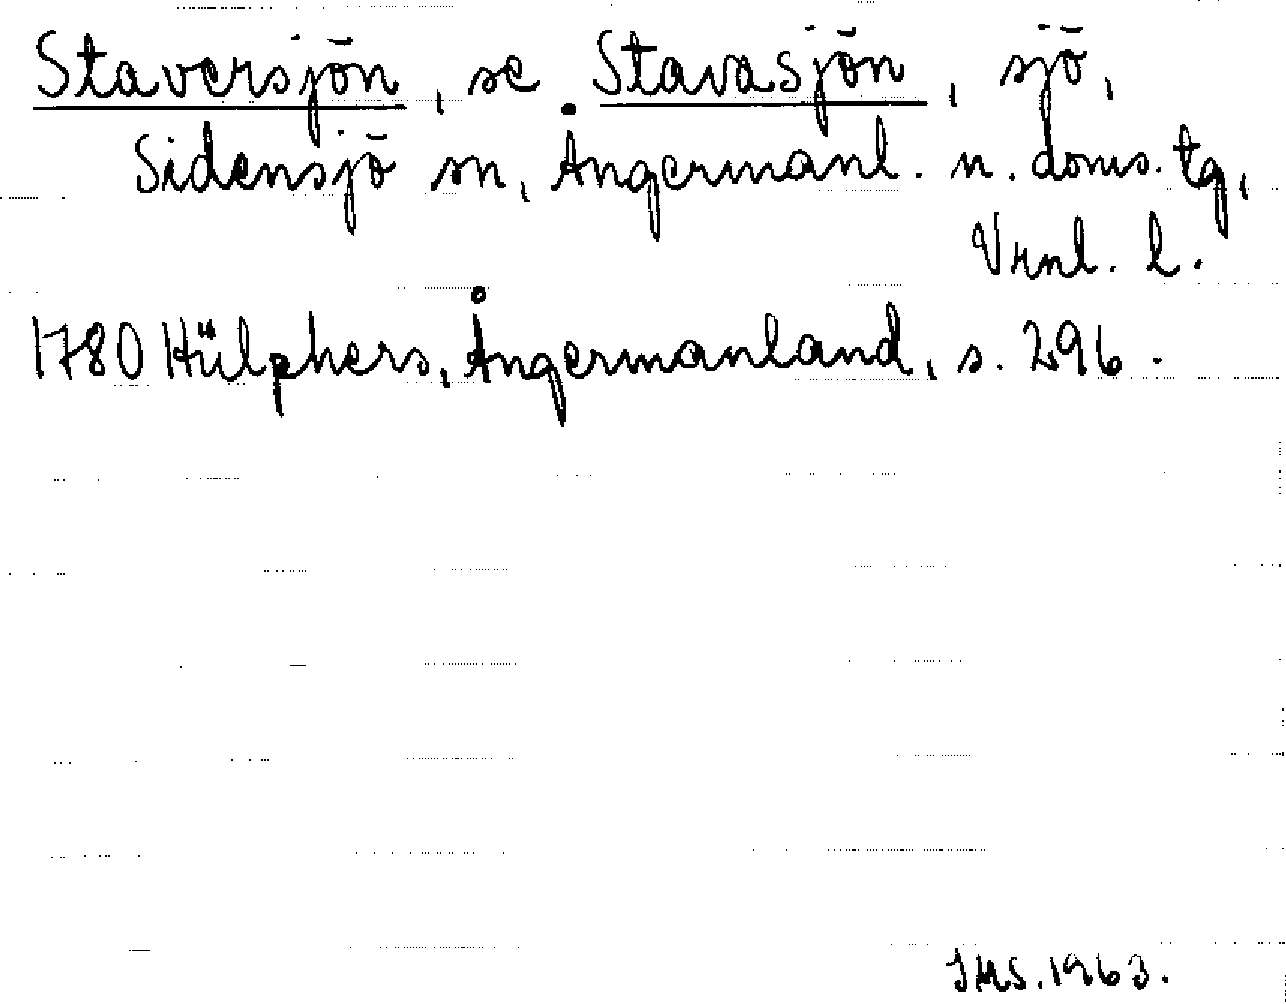 Staversjön, se Stavasjön, sjö,
Sidensjö sn, Ångermanl. n. doms. tg,
Vrnl. l.
1780 Hülphers, Ångermanland, s. 296.
JMS. 1963.